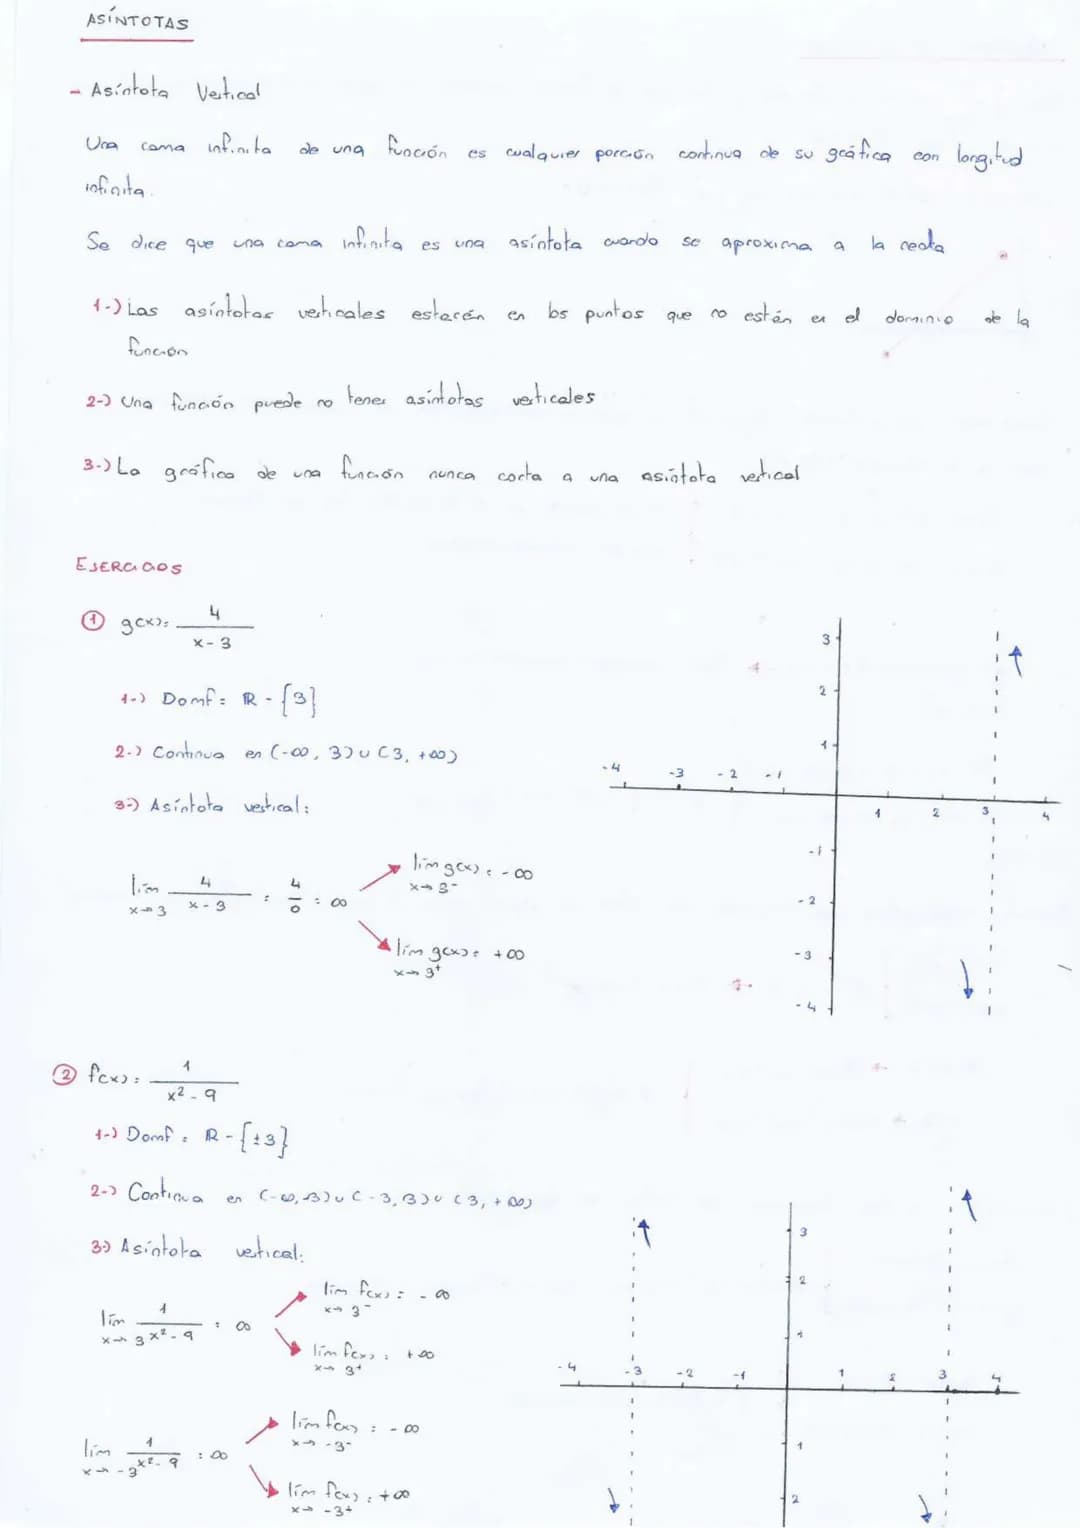 ASÍNTOTAS
- Asíntota Vertical
Una rama infinita de una función es cualquier porción continua de su gráfica con longitud
infinita.
Se dice que una rama infinita es una asíntota cuando se aproxima a la recta
1-) Las asíntotas verticales estarán en los puntos que no están en el dominio de la
función
2-) Una función puede no tener asíntotas verticales
3-) La gráfica de una función nunca corta a una asíntota vertical
EJERCICIOS
① g(x) = 4
x - 3
1-) Domf = ℝ - {3}
2-) Continua en (-∞, 3) ∪ (3, +∞)
3-) Asíntota vertical:
lim 4/(x - 3) = 4/0 = ∞
x→3
lim g(x) = -∞
x→3-
lim g(x) = +∞
x→3+
3
2
1
-4 -3 -2 -1
1 2 3 4
-1
-2
-3
-4
② f(x) = 1
x² - 9
1-) Domf = ℝ - {±3}
2-) Continua en (-∞, -3) ∪ (-3, 3) ∪ (3, +∞)
3-) Asíntota vertical:
lim 1/(x² - 9) = ∞
x→3
lim f(x) = -∞
x→3-
lim f(x) = +∞
x→3+
lim 1/(x² - 9) = ∞
x→-3
lim f(x) = -∞
x→-3-
lim f(x) = +∞
x→-3+
3
2
1
-4 -3 -2 -1 1 2 3 4
1
2